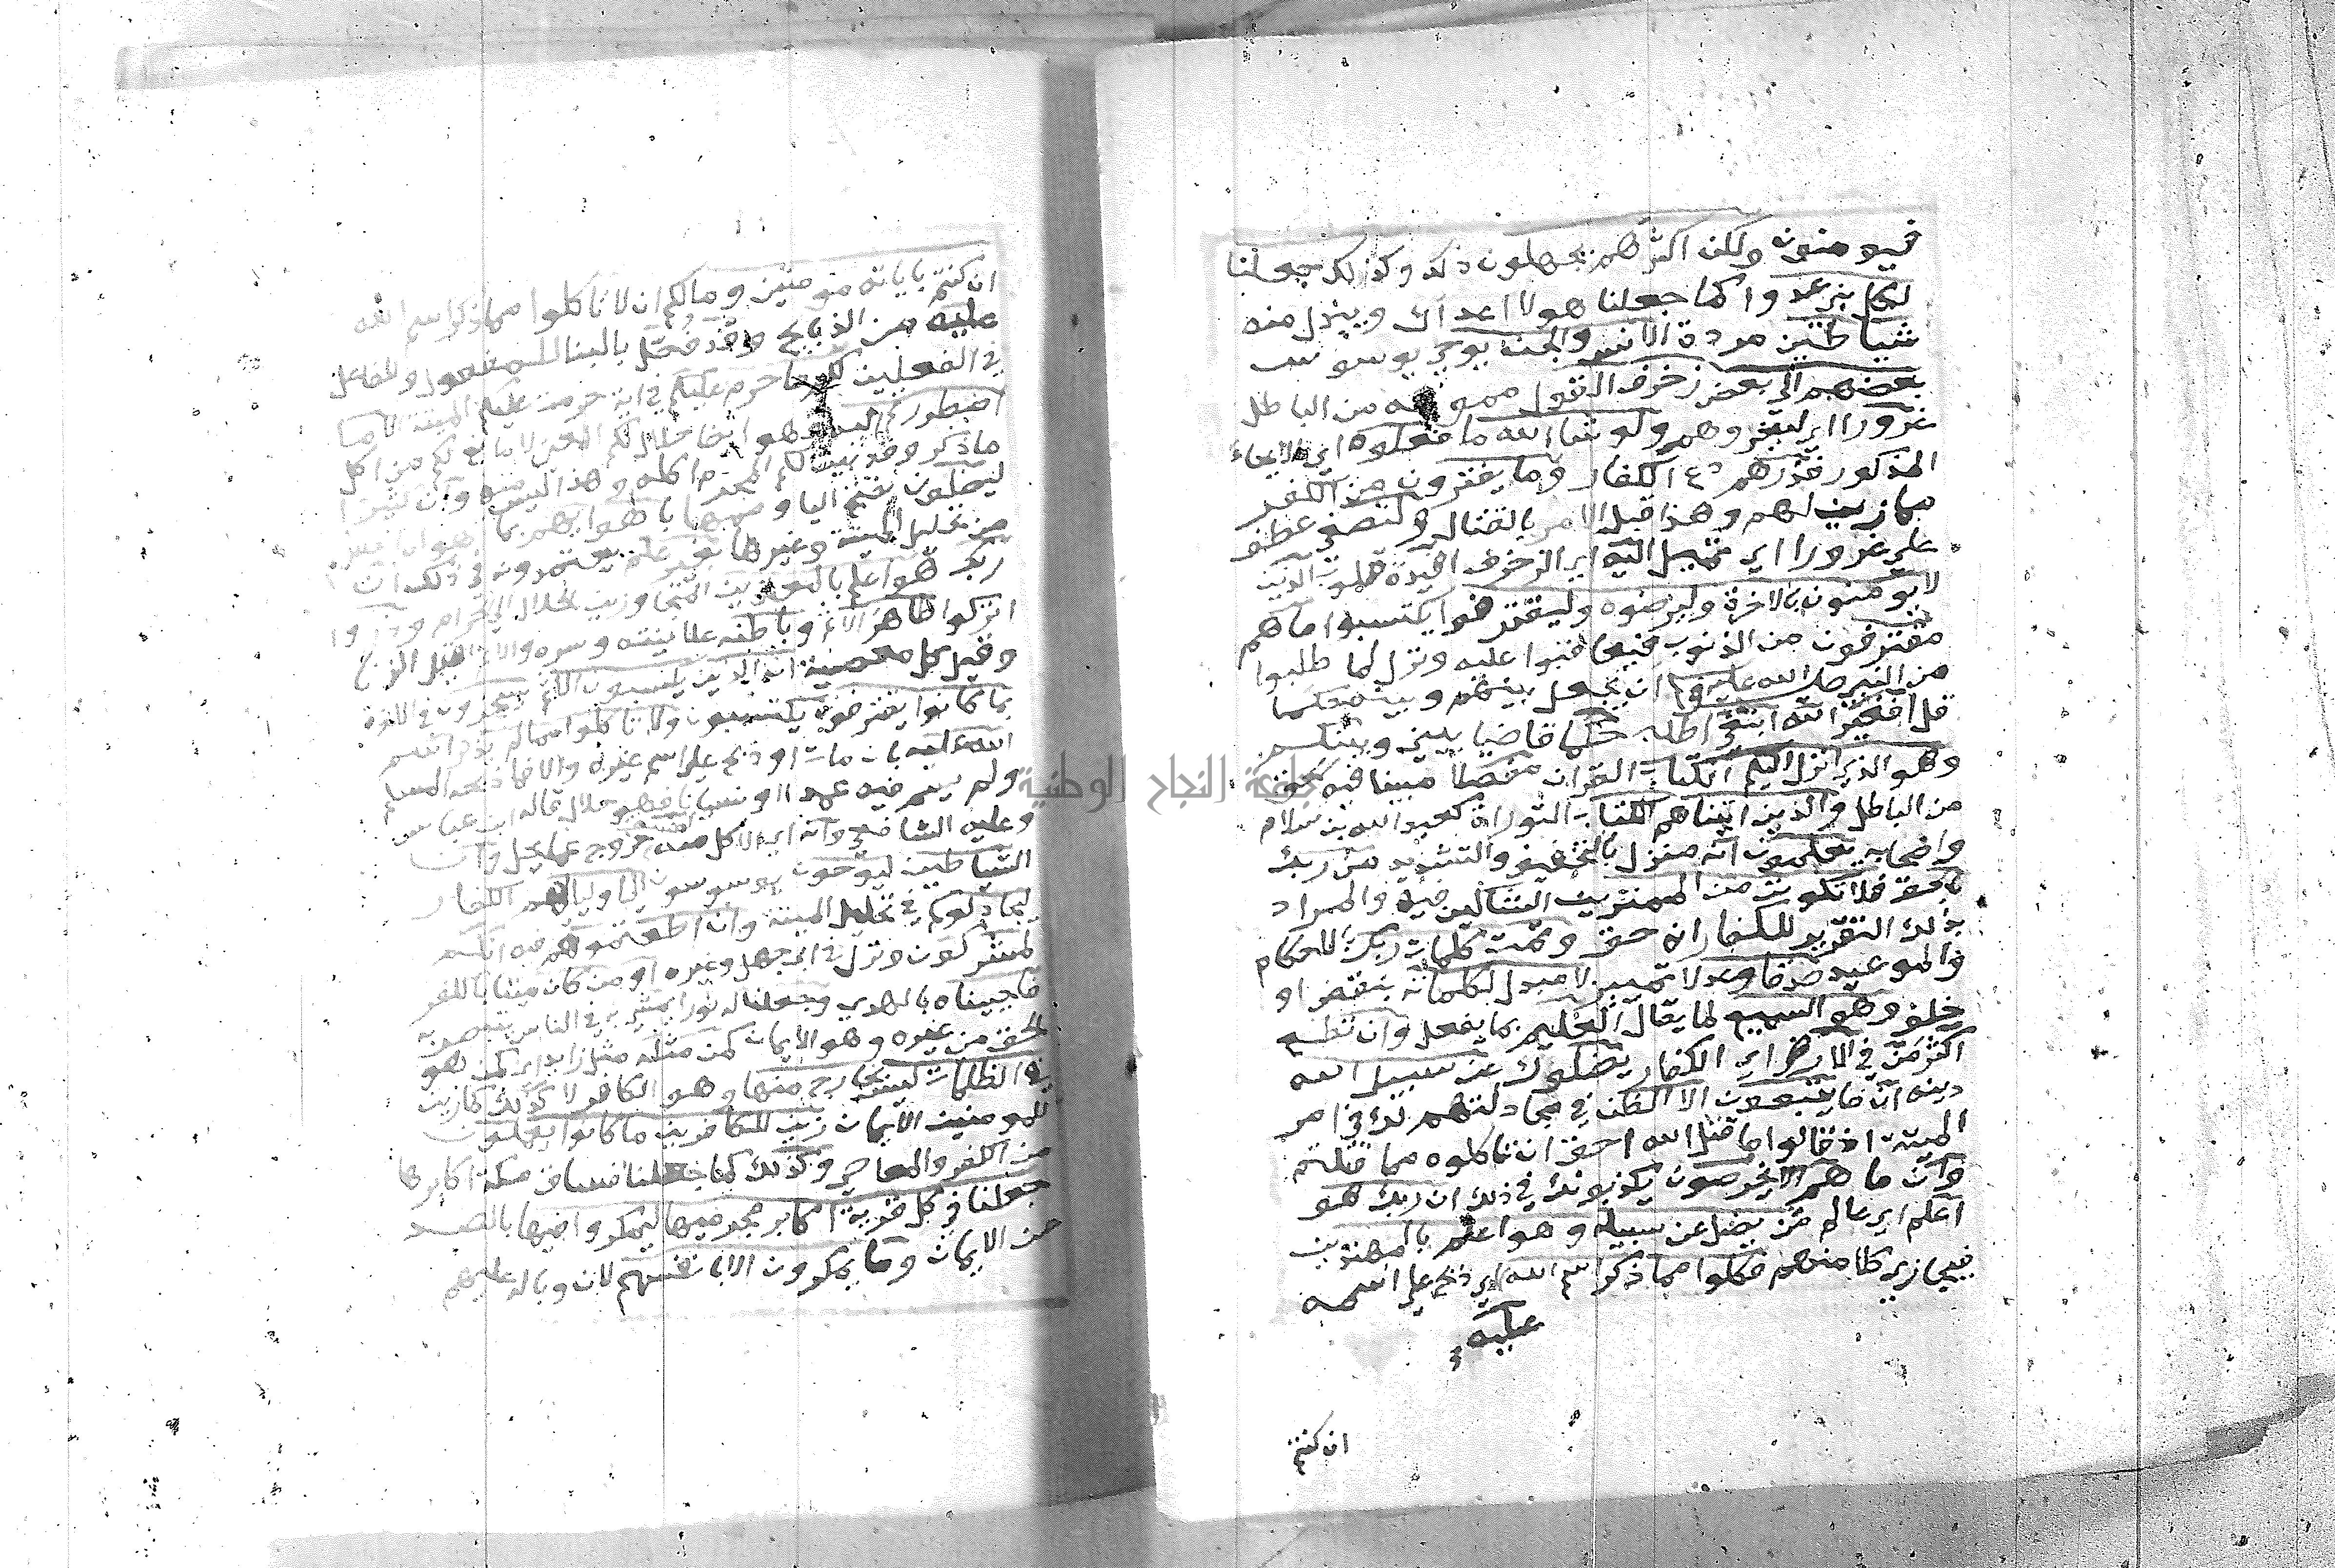 فيومنون ولكن اكثرهم يجهلون ذلك وكذلك جعلنا
لكل نبي عدوا كما جعلنا هولا اعداك ويبدل منه
شياطين مردة الانس والجن يوحي يوسوس
بعضهم الى بعض زخرف القول مموهه من الباطل
غرورا اي ليغروهم ولو شاء الله ما فعلوه اي الايحاء
المذكور فذرهم دع الكفار وما يفترون من الكفر
مما زين لهم وهذا قبل الامر بالقتال ولتصغى عطف
على غرورا اي تميل اليه اي الزخرف افيدة قلوب الذين
لا يومنون بالاخرة وليرضوه وليقترفوا يكتسبوا ما هم
مقترفون من الذنوب فيعاقبوا عليه ونزل لما طلبوا
من النبي صلى الله عليه ان يجعل بينهم وبينه حكما
قل افغير الله ابتغي اطلب حكما قاضيا بيني وبينكم
وهو الذي انزل اليكم الكتاب القران مفصلا مبينا فيه الحق
من الباطل والذين اتيناهم الكتاب التوراة كعبد الله بن سلام
واصحابه يعلمون انه منزل بالتخفيف والتشديد من ربك
بالحق فلا تكونن من الممترين الشاكين فيه والمراد
بذلك التقرير للكفار انه حق وتمت كلمات ربك بالاحكام
والمواعيد صدقا وعدلا تمييز لا مبدل لكلماته بنقض او
خلف وهو السميع لما يقال العليم بما يفعل وان تطع
اكثر من في الارض اي الكفار يضلوك عن سبيل الله
دينه ان ما يتبعون الا الظن في مجادلتهم لك في امر
الميتة اذ قالوا ما قتل الله احق ان تاكلوه مما قتلتم
وان ما هم الا يخرصون يكذبونك في ذلك ان ربك هو
اعلم اي عالم من يضل عن سبيله وهو اعلم بالمهتدين
فيجازي كلا منهم فكلوا مما ذكر اسم الله اي ذبح على اسمه
عليه
ان كنتم
ان كنتم باياته مومنين وما لكم ان لا تاكلوا مما ذكر اسم الله
عليه من الذبايح وقد فصل بالبنا للمفعول وللفاعل
في الفعلين لكم ما حرم عليكم في اية حرمت عليكم الميتة الا ما
اضطررتم اليه وهو ايضا حلال لكم المعنى لا مانع لكم من اكل
ما ذكر وقد بين لكم المحرم اكله وهذا ليس منه وان كثيرا
ليضلون بفتح اليا وضمها باهوايهم بما
من تحليل الميتة وغيرها بغير علم يعتمدونه في ذلك ان
ربك هو اعلم بالمعتدين المتجاوزين الحلال الى الحرام وذروا
اتركوا ظاهر الاثم وباطنه علانيته وسره والاثم قيل الزنا
وقيل كل معصية ان الذين يكسبون الاثم سيجزون في الاخرة
بما كانوا يقترفون يكتسبون ولا تاكلوا مما لم يذكر اسم
الله عليه بان مات او ذبح على اسم غيره والا فما ذبحه المسلم
ولم يسم فيه عمدا او نسيانا فهو حلال قاله ابن عباس
وعليه الشافعي وانه اي الاكل منه لفسق خروج عما يحل وان
الشياطين ليوحون يوسوسون الى اوليايهم الكفار
ليجادلوكم في تحليل الميتة وان اطعتموهم فيه انكم
لمشركون ونزل في ابي جهل وغيره او من كان ميتا بالكفر
فاحييناه بالهدى وجعلنا له نورا يمشي به في الناس يتبصر به
الحق من غيره وهو الايمان كمن مثله مثل زايد اي كمن هو
في الظلمات ليس بخارج منها وهو الكافر لا كذلك كما زين
للمومنين الايمان زين للكافرين ما كانوا يعملون
من الكفر والمعاصي وكذلك كما جعلنا فساق مكة اكابرها
جعلنا في كل قرية اكابر مجرميها ليمكروا فيها بالصد
عن الايمان وما يمكرون الا بانفسهم لان وباله عليهم
جامعة النجاح الوطنية